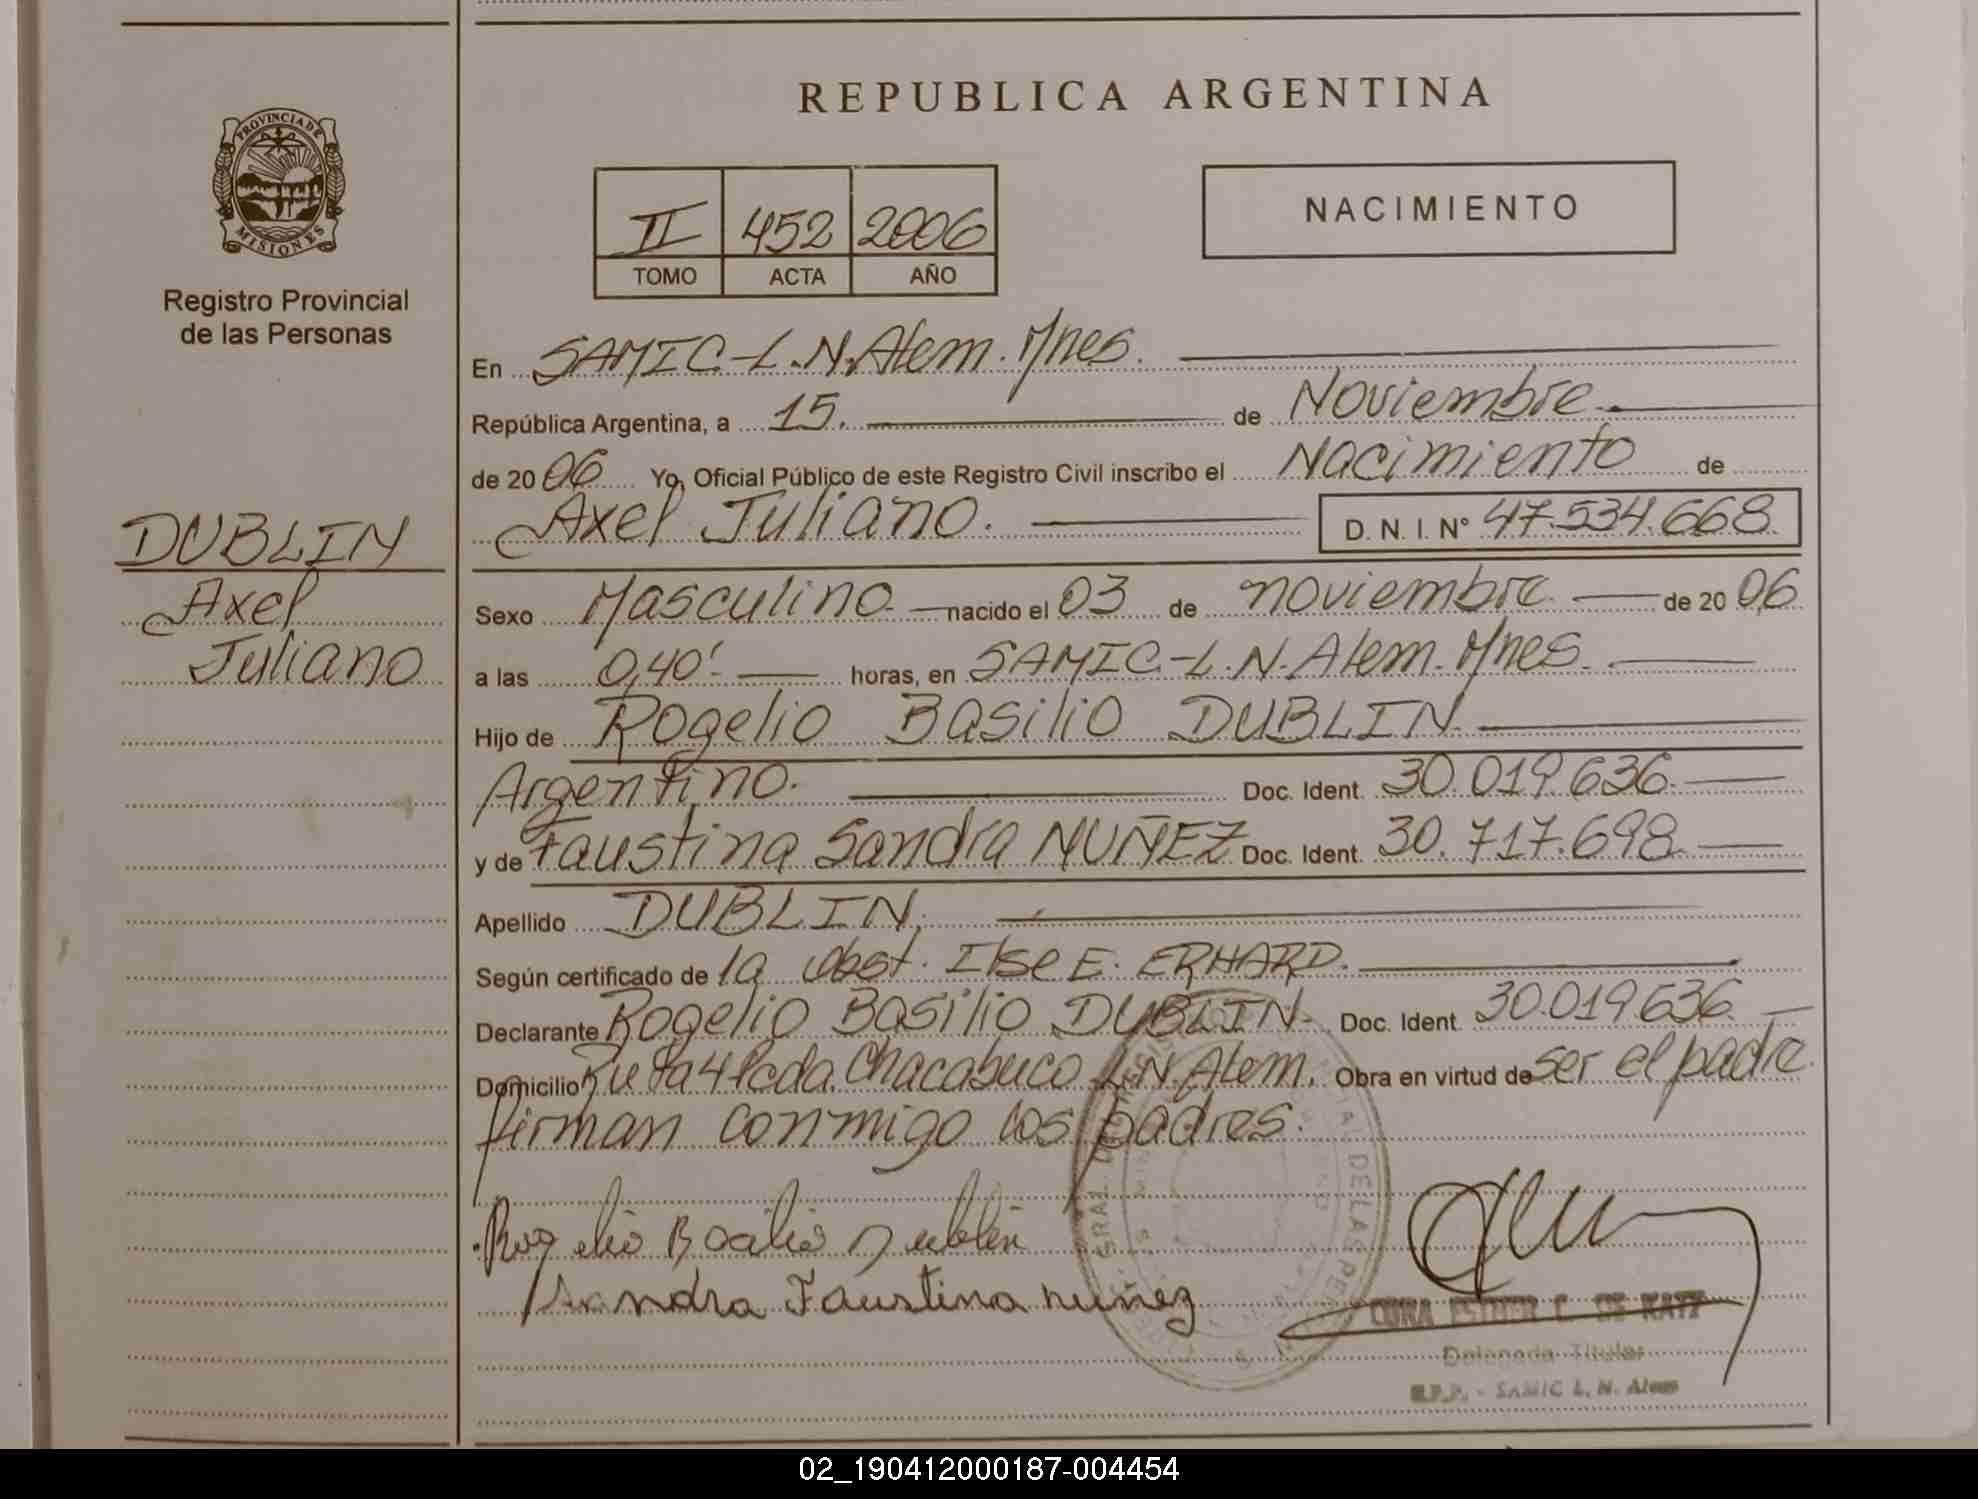 REPUBLICA ARGENTINA
PROVINCIA DE
MISIONES
Registro Provincial
de las Personas
II 452 2006
TOMO ACTA AÑO
NACIMIENTO
En SAMIC-L.N.Alem. Mnes.
República Argentina, a 15. de Noviembre.
de 2006 Yo, Oficial Público de este Registro Civil inscribo el Nacimiento de
Axel Juliano. D. N. I. N° 47.534.668
DUBLIN
Axel
Juliano
Sexo Masculino. nacido el 03 de noviembre. de 2006
a las 0,40'. horas, en SAMIC-L.N.Alem. Mnes.
Hijo de Rogelio Basilio DUBLIN.
Argentino. Doc. Ident. 30.019.636.
y de Faustina Sandra NUÑEZ Doc. Ident. 30.717.698.
Apellido DUBLIN.
Según certificado de la obst. Ilse E. ERHARD.
Declarante Rogelio Basilio DUBLIN. Doc. Ident. 30.019.636.
Domicilio Ruta 4 Pcda. Chacabuco L.N.Alem. Obra en virtud de ser el padre.
firman conmigo los padres.
Rogelio Basilio Dublin
Sandra Faustina nuñez
ESTHER C. DE KATZ
Delegada Titular
R.P.P. - SAMIC L. N. Alem
02_190412000187-004454